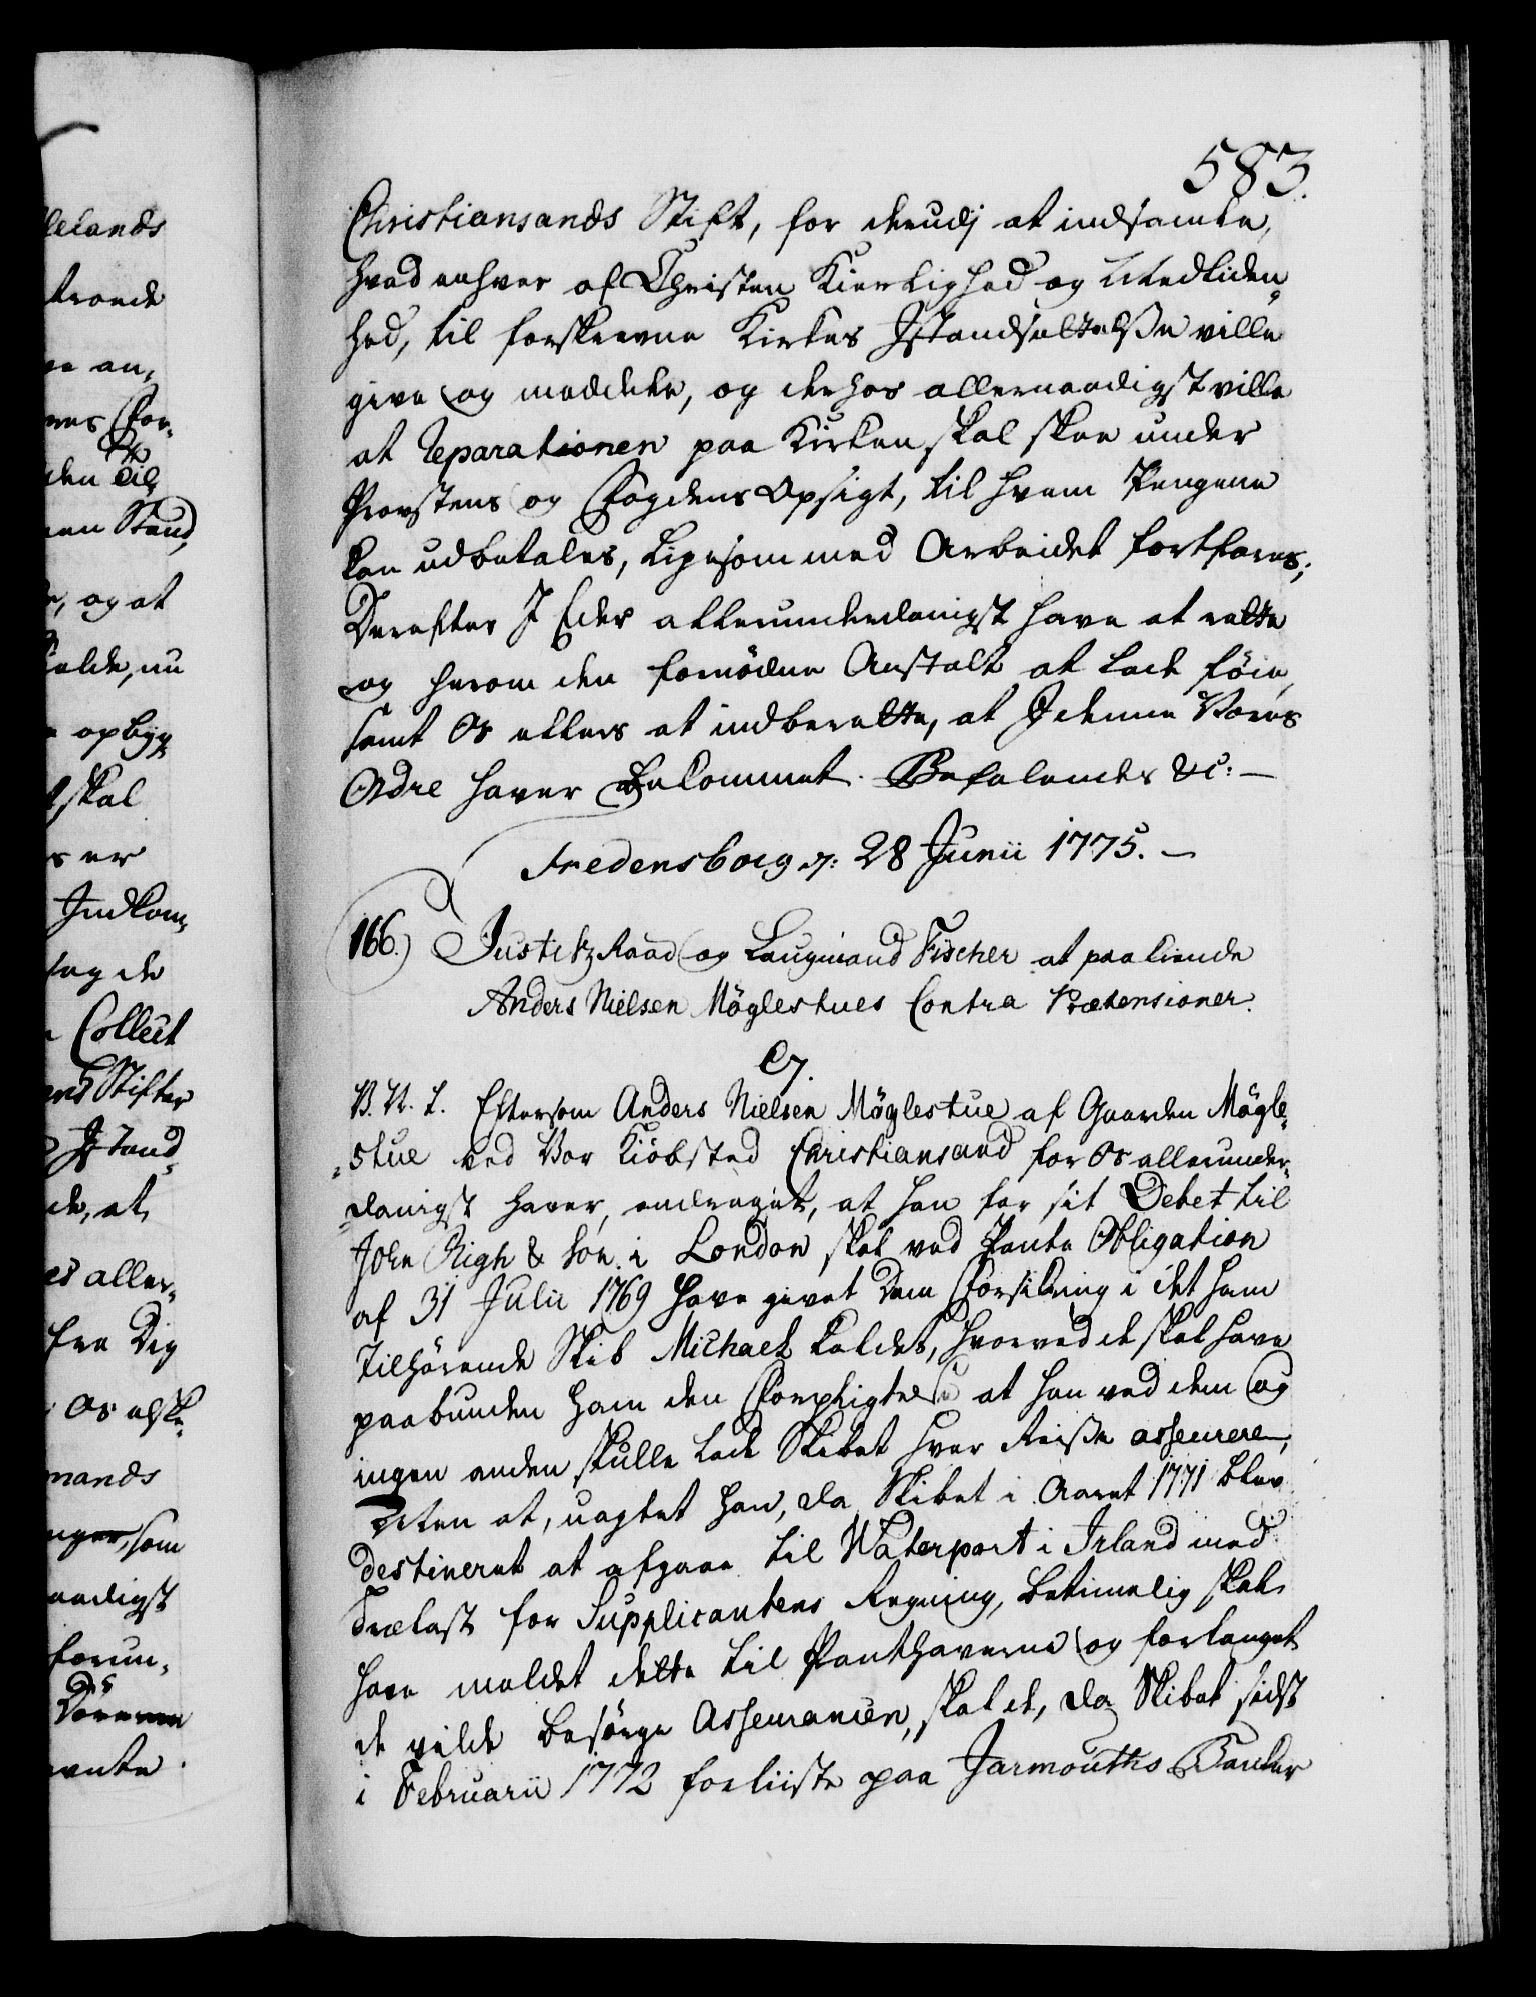 583.
Christiansands Stift, for derudj at indsamle,
hvad enhver af Christen Kierlighed og Medliden„
hed, til forskrevne Kirkes Jstandsættelsse ville
give og meddele, og derhos allernaadigst ville
at Reparationen paa Kirken skal skee under
Provstens og Fogdens Opsigt, til hvem Pengene
kan udbetales, ligesom med Arbeidet fortfares;
Derefter J Eder allerunderdanigst have at rette
og herom den fornödne Anstalt at lade föie,
samt Os ellers at indberette, at J denne Vores
Ordre haver bekommet. Befalendes &c: —
Fredensborg d: 28 Junii 1775. —
166.) Justitz Raad og Laugmand Fischer at paakiende
Anders Nielsen Möglestues Contra Prætensioner.
C7.
V. N. T. Eftersom Anders Nielsen Möglestue af Gaarden Mögle„
„stue ved Vor Kiöbsted Christiansand for Os allerunder„
„danigst haver andraget, at han for sit Debet til
John Righ & Son i London skal ved Pante Obligation
af 31 Julii 1769 have givet dem Forsikring i det ham
tilhörende Skib Michael kaldet, hvorved de skal have
paabunden ham den Forpligtelse at han ved dem og
ingen anden skulle lade Skibet hver Reisse asseurere,
Uden at, uagtet han, da Skibet i Aaret 1771 blev
destineret at afgaae til Waterport i Irland med
Trælast for Supplicantens Regning, betimelig skal
have meldet dette til Panthaverne og forlanget
de vilde besörge Asseurancen, skal de, da Skibet sidst
i Februarii 1772 forliiste paa Jarmouths Banker